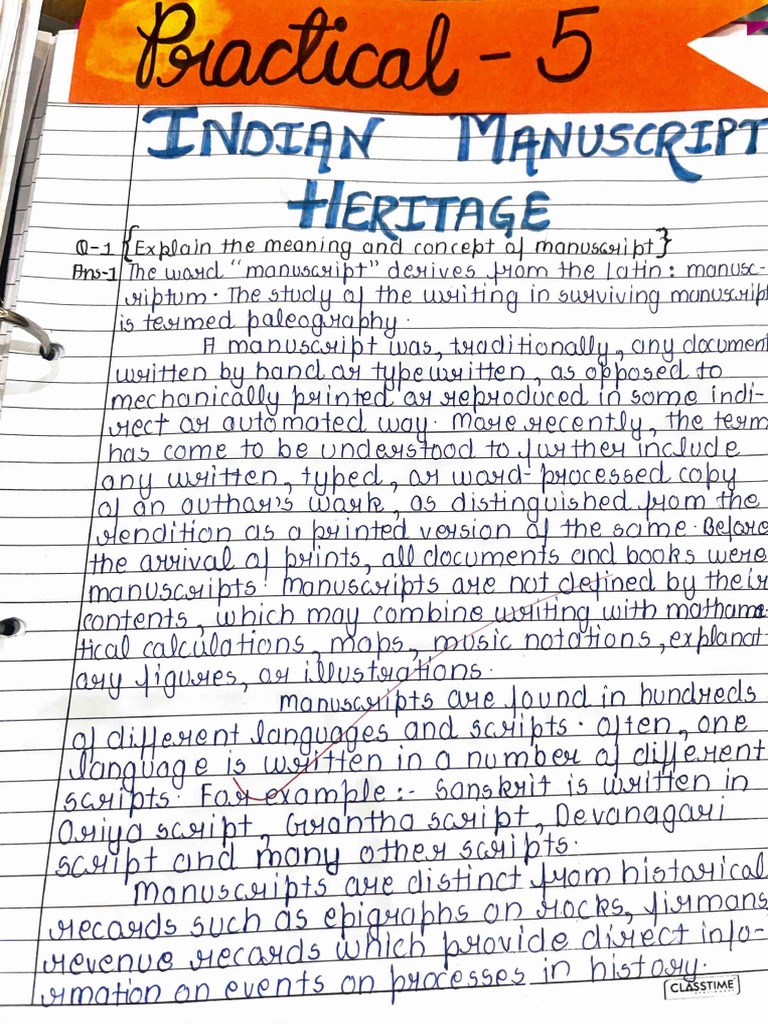 Practical - 5
INDIAN MANUSCRIPT
HERITAGE
Q-1 {Explain the meaning and concept of manuscript}
Ans-1 The word "manuscript" derives from the latin: manusc-
riptum. The study of the writing in surviving manuscript
is termed paleography.
A manuscript was, traditionally, any document
written by hand or typewritten, as opposed to
mechanically printed or reproduced in some indi-
rect or automated way. More recently, the term
has come to be understood to further include
any written, typed, or word-processed copy
of an author's work, as distinguished from the
rendition as a printed version of the same. Before
the arrival of prints, all documents and books were
manuscripts. manuscripts are not defined by their
contents, which may combine writing with mathama-
tical calculations, maps, music notations, explanat-
ary figures, or illustrations.
manuscripts are found in hundreds
of different languages and scripts. often, one
language is written in a number of different
scripts. For example:- Sanskrit is written in
Oriya script, Grantha script, Devanagari
script and many other scripts.
manuscripts are distinct from historical
records such as epigraphs on rocks, firmans,
revenue records which provide direct info-
rmation on events on processes in history.
CLASSTIME